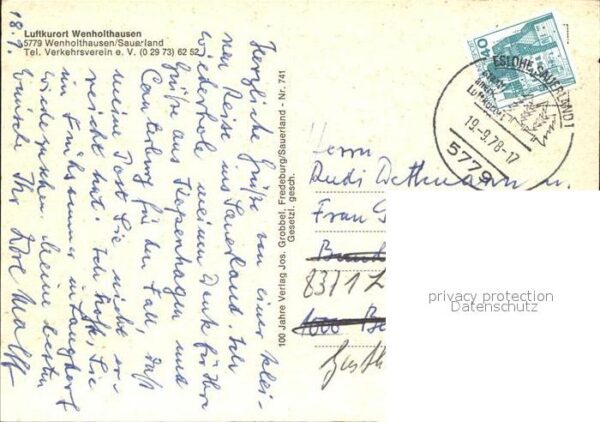 18.9.
Luftkurort Wenholthausen
5779 Wenholthausen/Sauerland
Tel. Verkehrsverein e. V. (0 29 73) 62 52
Herzliche Grüße von einer klei-
nen Reise ins Sauerland. Ich
wiederhole meinen Dank für Ihre
Grüße aus Kopenhagen und
Canterbury für den Fall, daß
meine Post Sie nicht er-
reicht hat. Ich hoffe, Sie
im Frühsommer in Langdorf
wiederzusehen. Meine besten
Wünsche Ihr Karl Wolff
100 Jahre Verlag Jos. Grobbel, Fredeburg/Sauerland - Nr. 741
Gesetzl. gesch.
40
ESLOHE, SAUERLAND 1
Luftkurort
19.-9.78-17
5779
Herrn
Rudi Dettmann u.
Frau
8371
1000 Be
privacy protection
Datenschutz